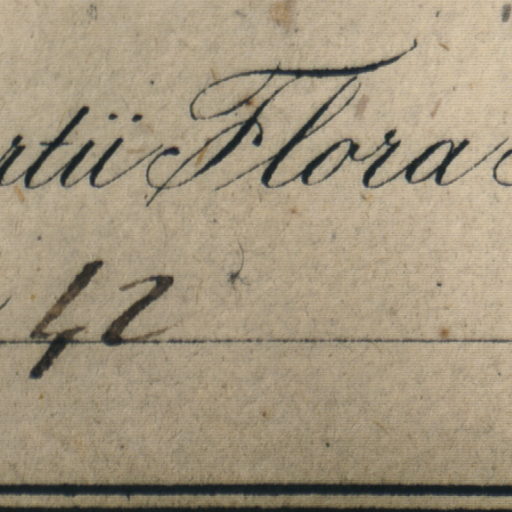 rtii Flora
42